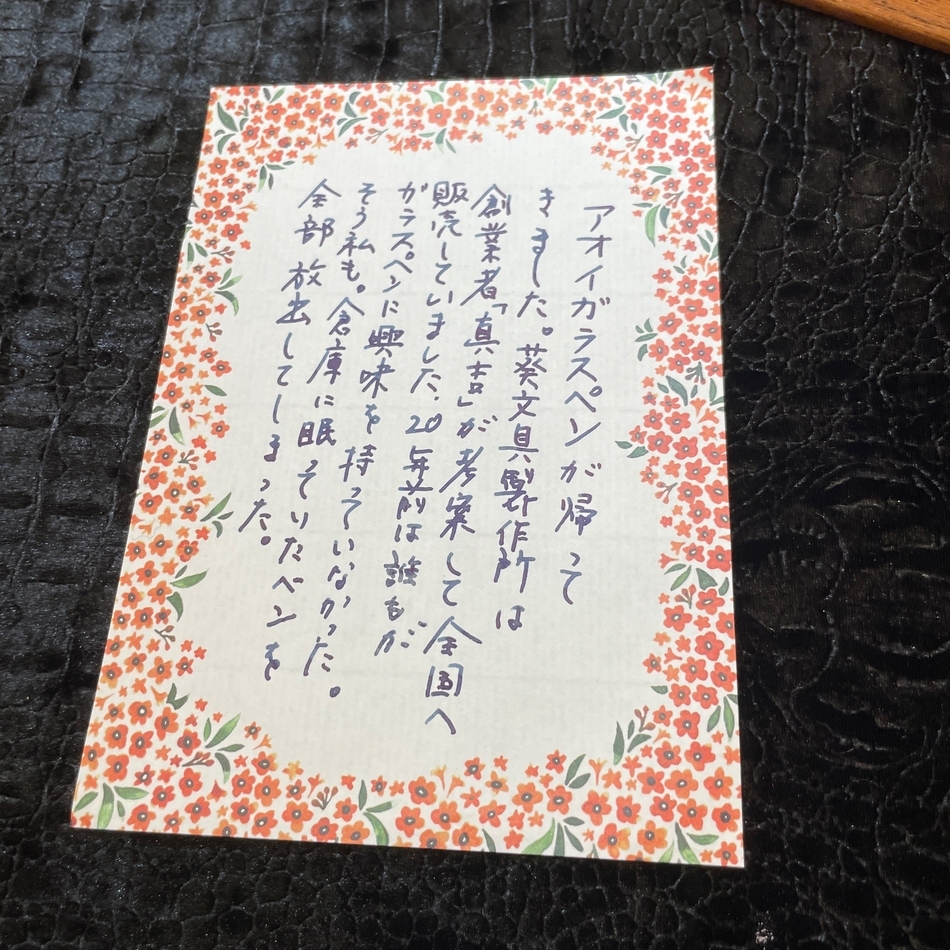 アオイガラスペンが帰って
きました。葵文具製作所は
創業者「真吉」が考案して全国へ
販売していました。20年前は誰もが
ガラスペンに興味を持っていなかった。
そう私も。倉庫に眠っていたペンを
全部放出してしまった。